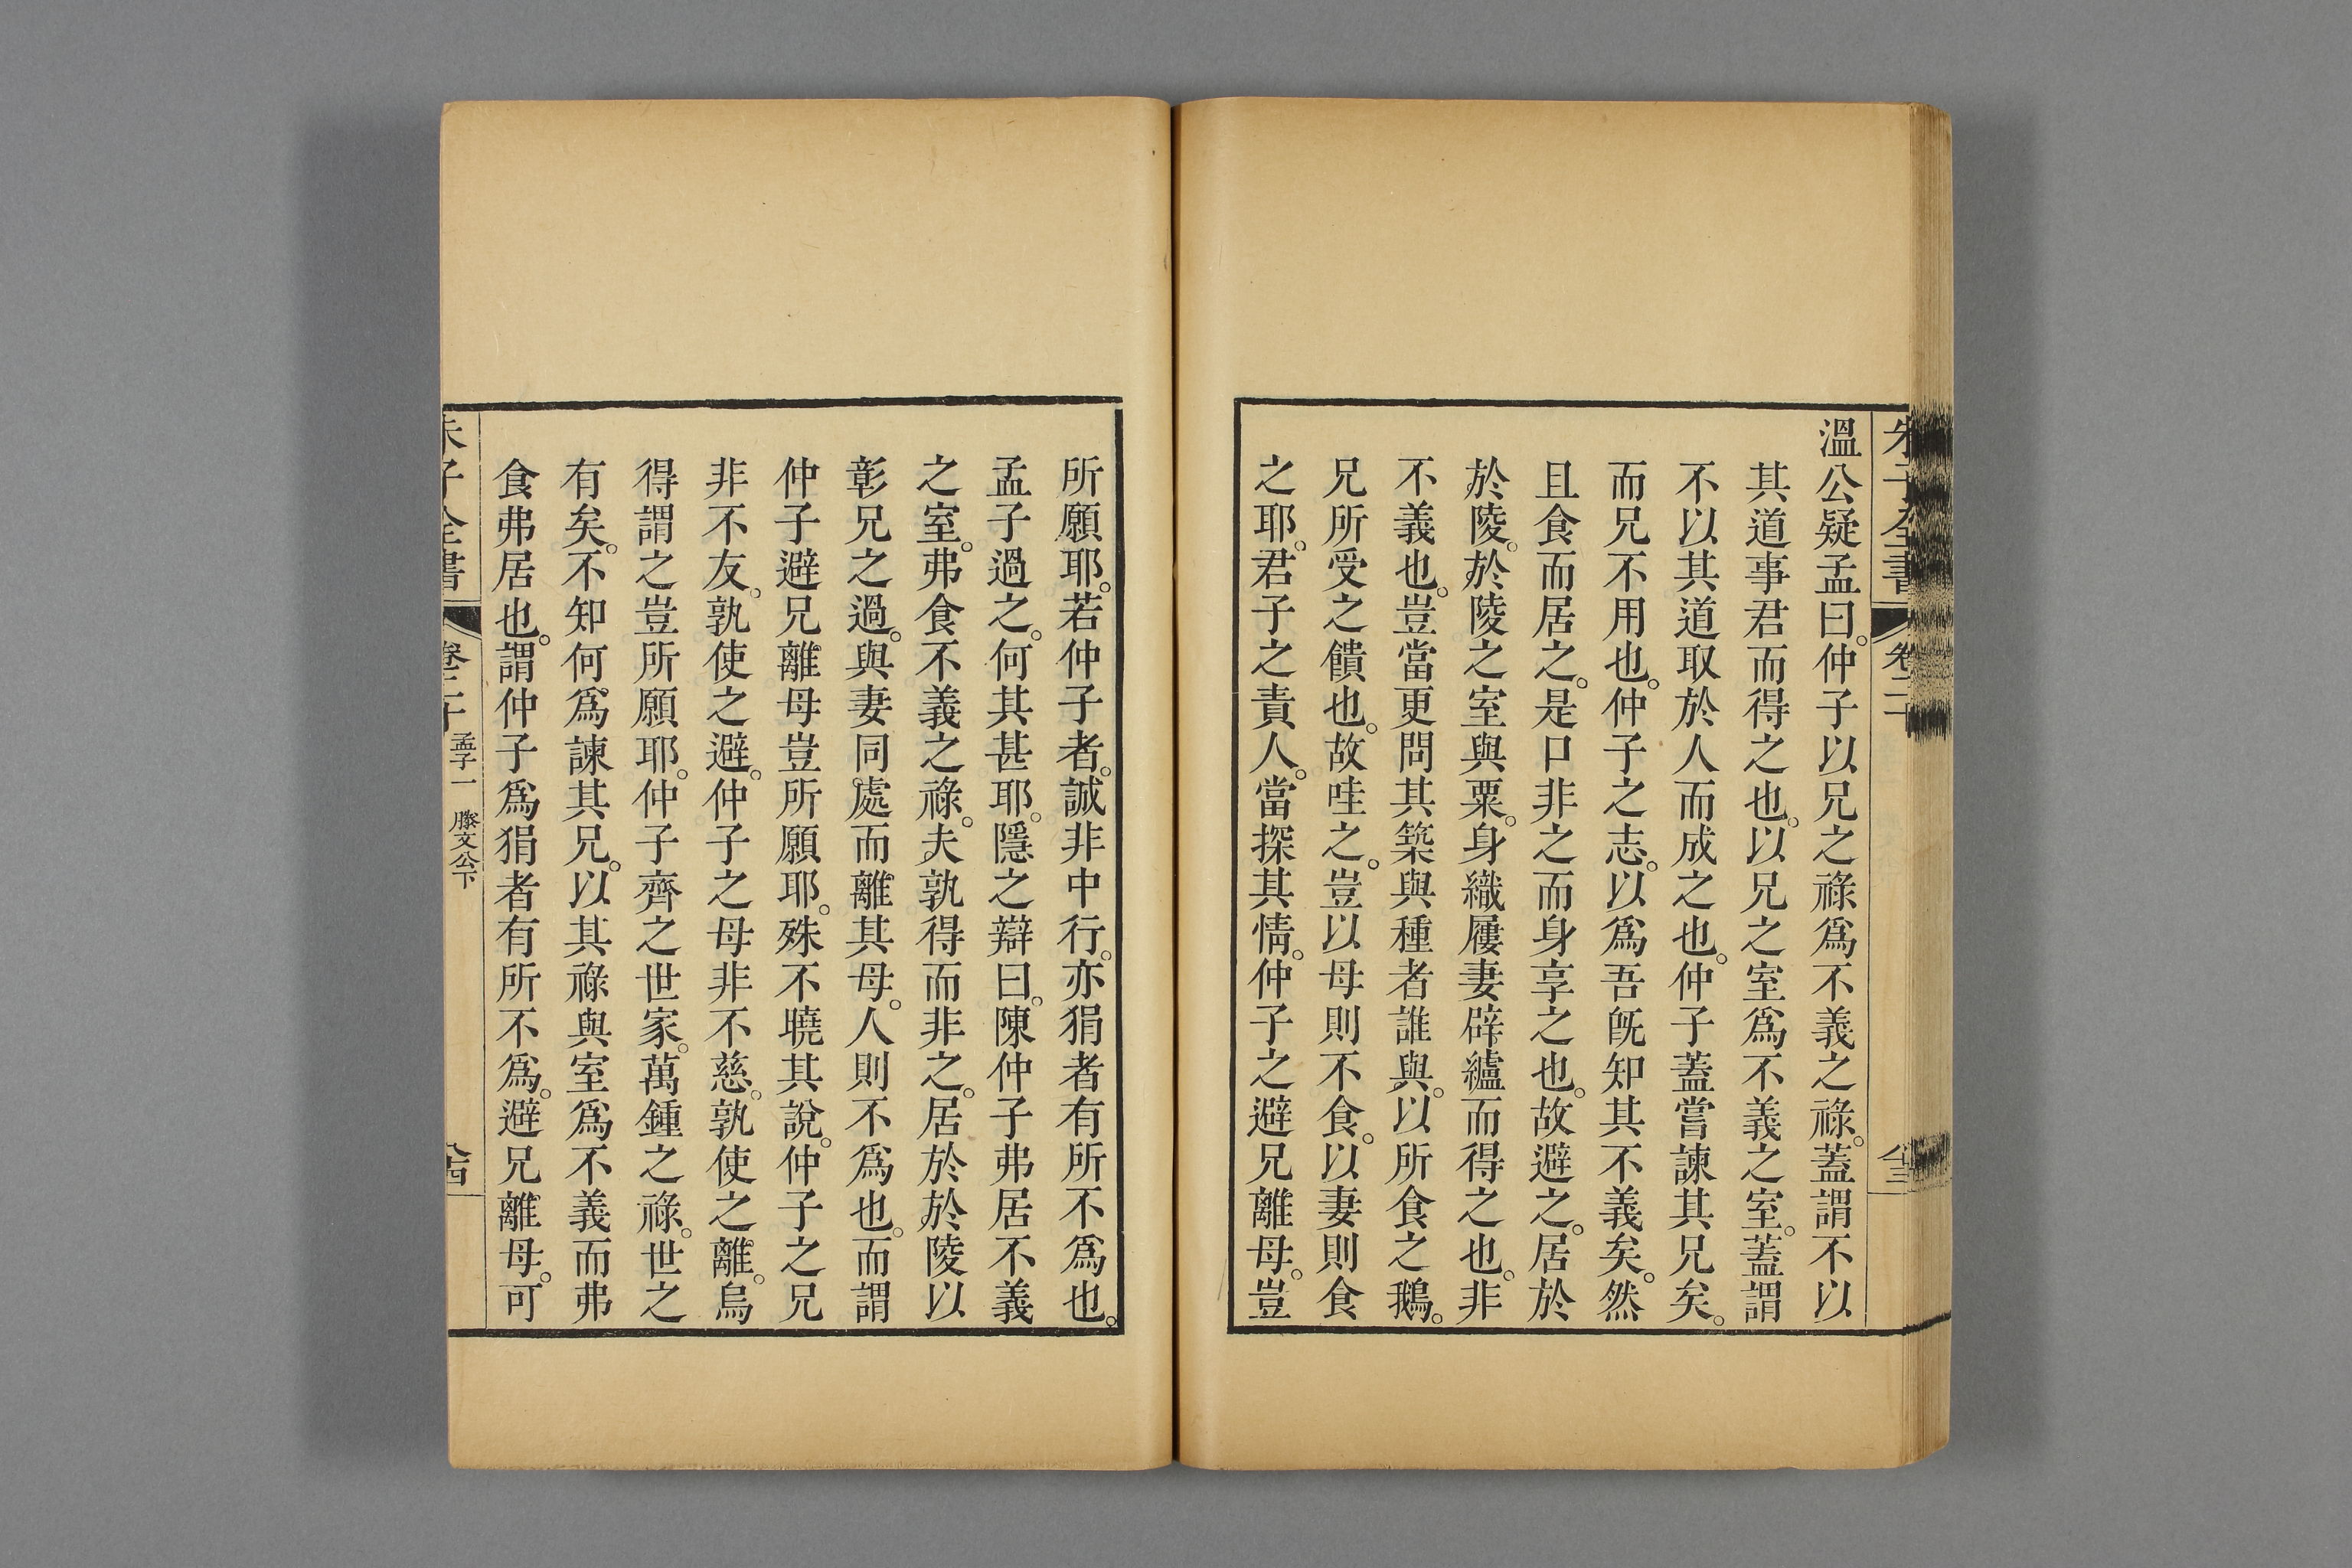 朱子全書 卷二十 八十三
溫公疑孟曰。仲子以兄之祿爲不義之祿。蓋謂不以
其道事君而得之也。以兄之室爲不義之室。蓋謂
不以其道取於人而成之也。仲子蓋嘗諫其兄矣。
而兄不用也。仲子之志。以爲吾旣知其不義矣。然
且食而居之。是口非之而身享之也。故避之。居於
於陵。於陵之室與粟。身織屨妻辟纑而得之也。非
不義也。豈當更問其築與種者誰與。以所食之鵝。
兄所受之饋也。故哇之。豈以母則不食。以妻則食
之耶。君子之責人。當探其情。仲子之避兄離母。豈
所願耶。若仲子者。誠非中行。亦狷者有所不爲也。
孟子過之。何其甚耶。隱之辯曰。陳仲子弗居不義
之室。弗食不義之祿。夫孰得而非之。居於於陵以
彰兄之過。與妻同處而離其母。人則不爲也。而謂
仲子避兄離母豈所願耶。殊不曉其說。仲子之兄
非不友。孰使之避。仲子之母非不慈。孰使之離。烏
得謂之豈所願耶。仲子齊之世家。萬鍾之祿。世之
有矣。不知何爲諫其兄。以其祿與室爲不義而弗
食弗居也。謂仲子爲狷者有所不爲。避兄離母。可
朱子全書 卷二十 孟子一 滕文公下 八十四